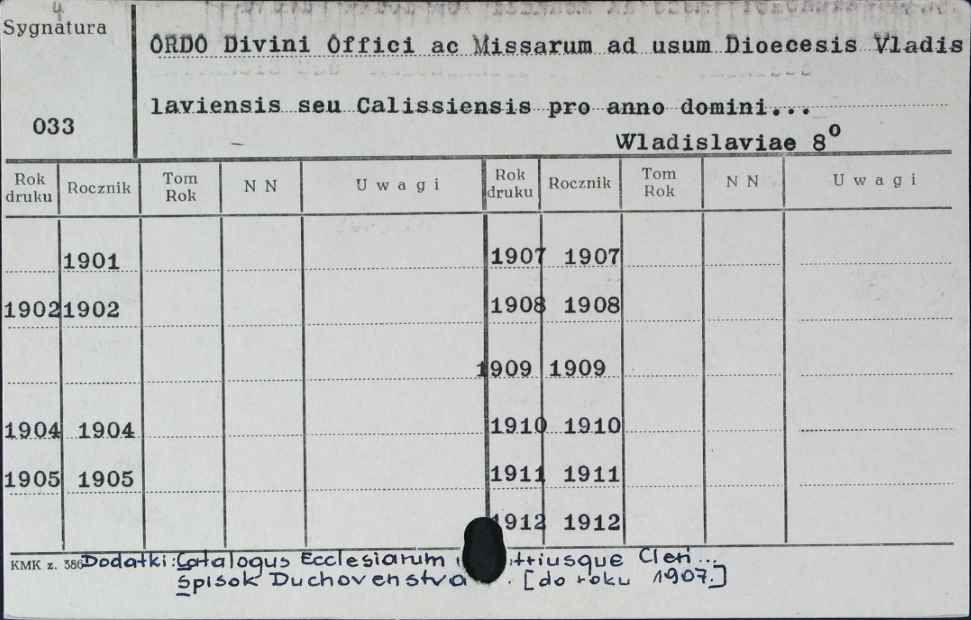 Sygnatura
ORDO Divini Offici ac Missarum ad usum Dioecesis Vladis
laviensis seu Calissiensis pro anno domini...
033
Wladislaviae 8º
Rok druku Rocznik Tom Rok N N Uwagi Rok druku Rocznik Tom Rok N N Uwagi
1901 1907 1907
1902 1902 1908 1908
1909 1909
1904 1904 1910 1910
1905 1905 1911 1911
1912 1912
KMK z. 386 Dodatki: Catalogus Ecclesiarum triusque Cleri...
Spisok Duchovenstva . [do roku 1907.]